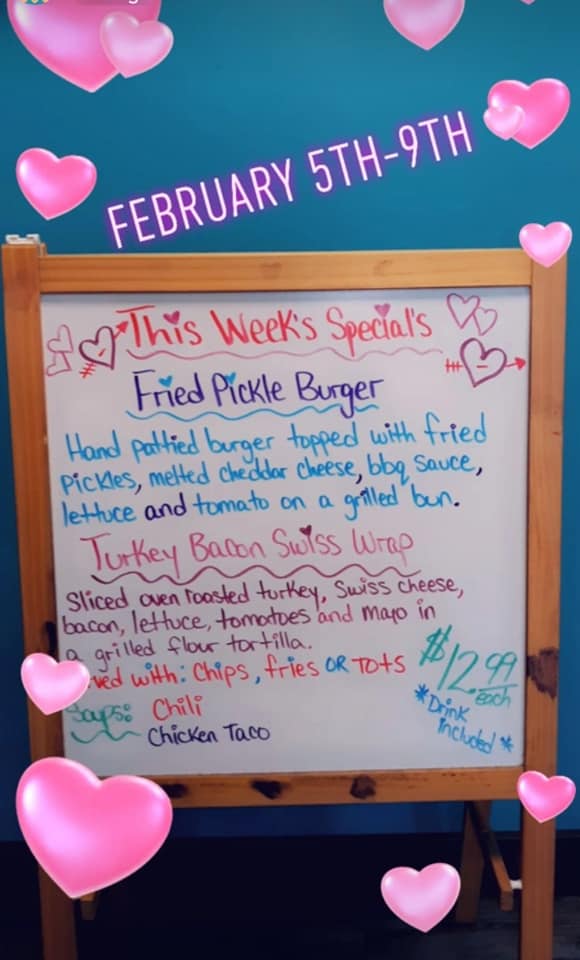 FEBRUARY 5TH-9TH
This Week's Special's
Fried Pickle Burger
Hand pattied burger topped with fried
pickles, melted cheddar cheese, bbq sauce,
lettuce and tomato on a grilled bun.
Turkey Bacon Swiss Wrap
Sliced oven roasted turkey, Swiss cheese,
bacon, lettuce, tomatoes and mayo in
a grilled flour tortilla.
ved with: Chips, fries OR TOTS
$12.99
each
Soups: Chili
Chicken Taco
*Drink
included*